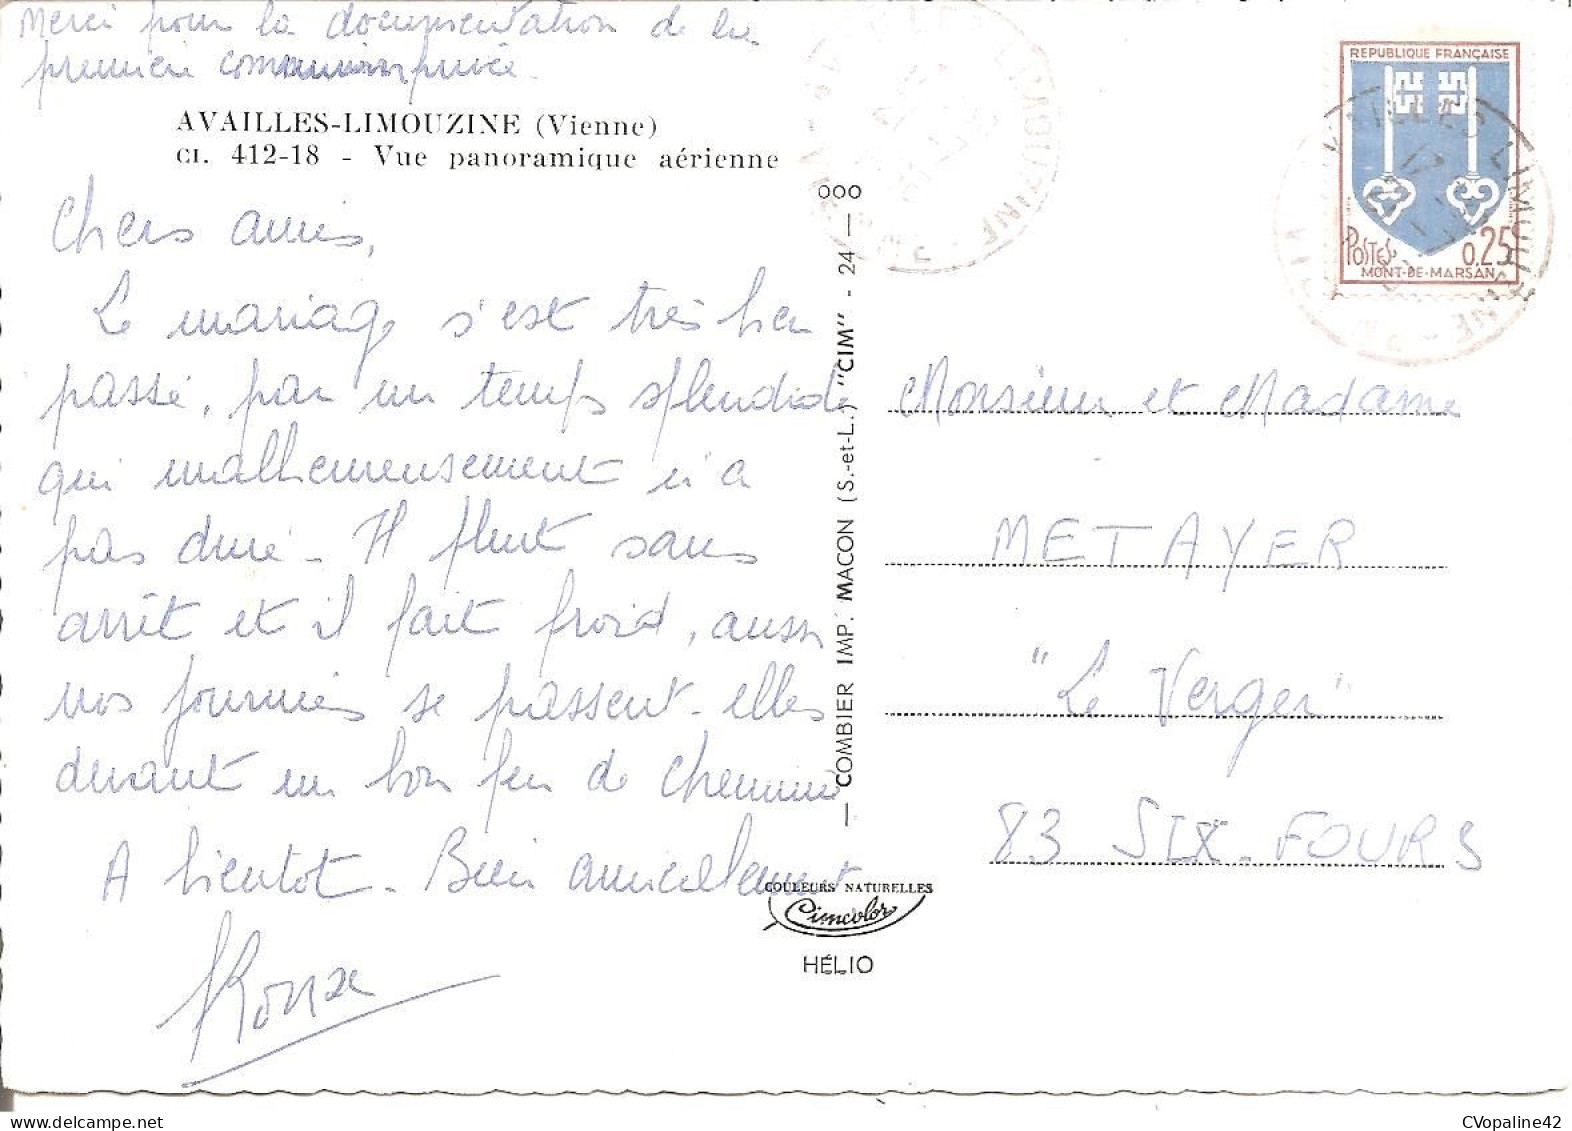 Merci pour la documentation de la
première communion privée.
AVAILLES-LIMOUZINE (Vienne)
CI. 412-18 - Vue panoramique aérienne
Chers amis,
Le mariage s'est très bien
passé, par un temps splendide
qui malheureusement n'a
pas duré - Il pleut sans
arrêt et il fait froid, aussi
nos journées se passent-elles
devant un bon feu de cheminée
A bientôt - Bien amicalement
COMBIER IMP. MACON (S.-et-L.) "CIM" - 24 - 000
COULEURS NATURELLES
Cimcolor
HÉLIO
REPUBLIQUE FRANÇAISE
POSTES 0,25
MONT-DE-MARSAN
AVAILLES LIMOUZINE
Monsieur et Madame
METAYER
"Le Verger"
83 SIX-FOURS
CVopaline42